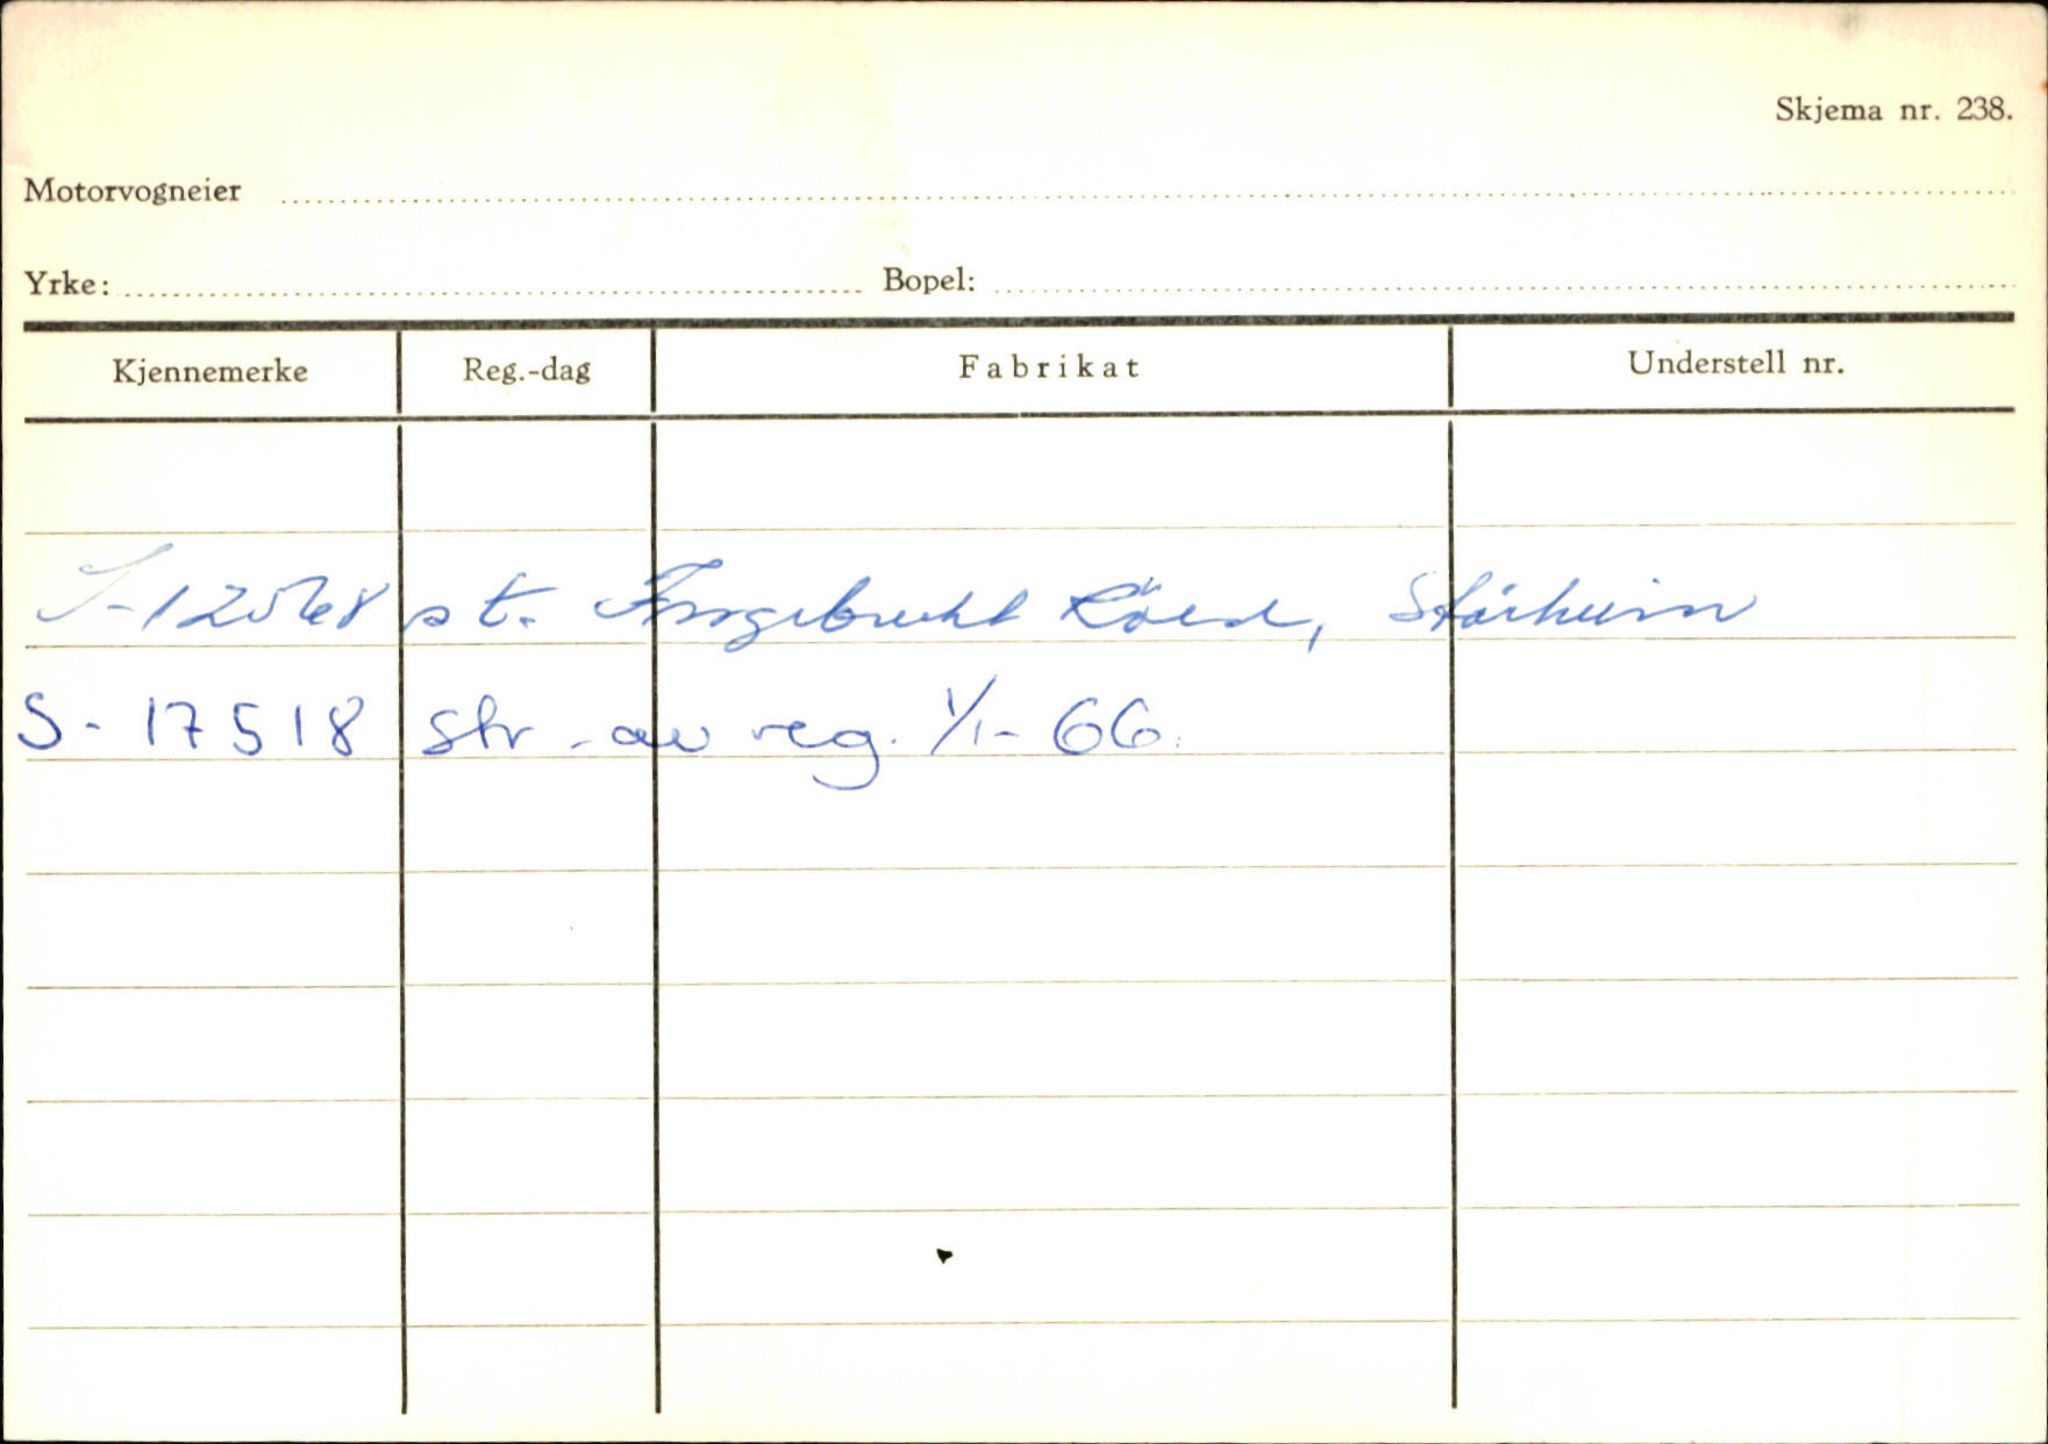 Skjema nr. 238.
Motorvogneier
Yrke: Bopel:
Kjennemerke Reg.-dag Fabrikat Understell nr.
S-12568 st. Ingebricht Stårheim
S-17518 str. av reg. 1/1-66.